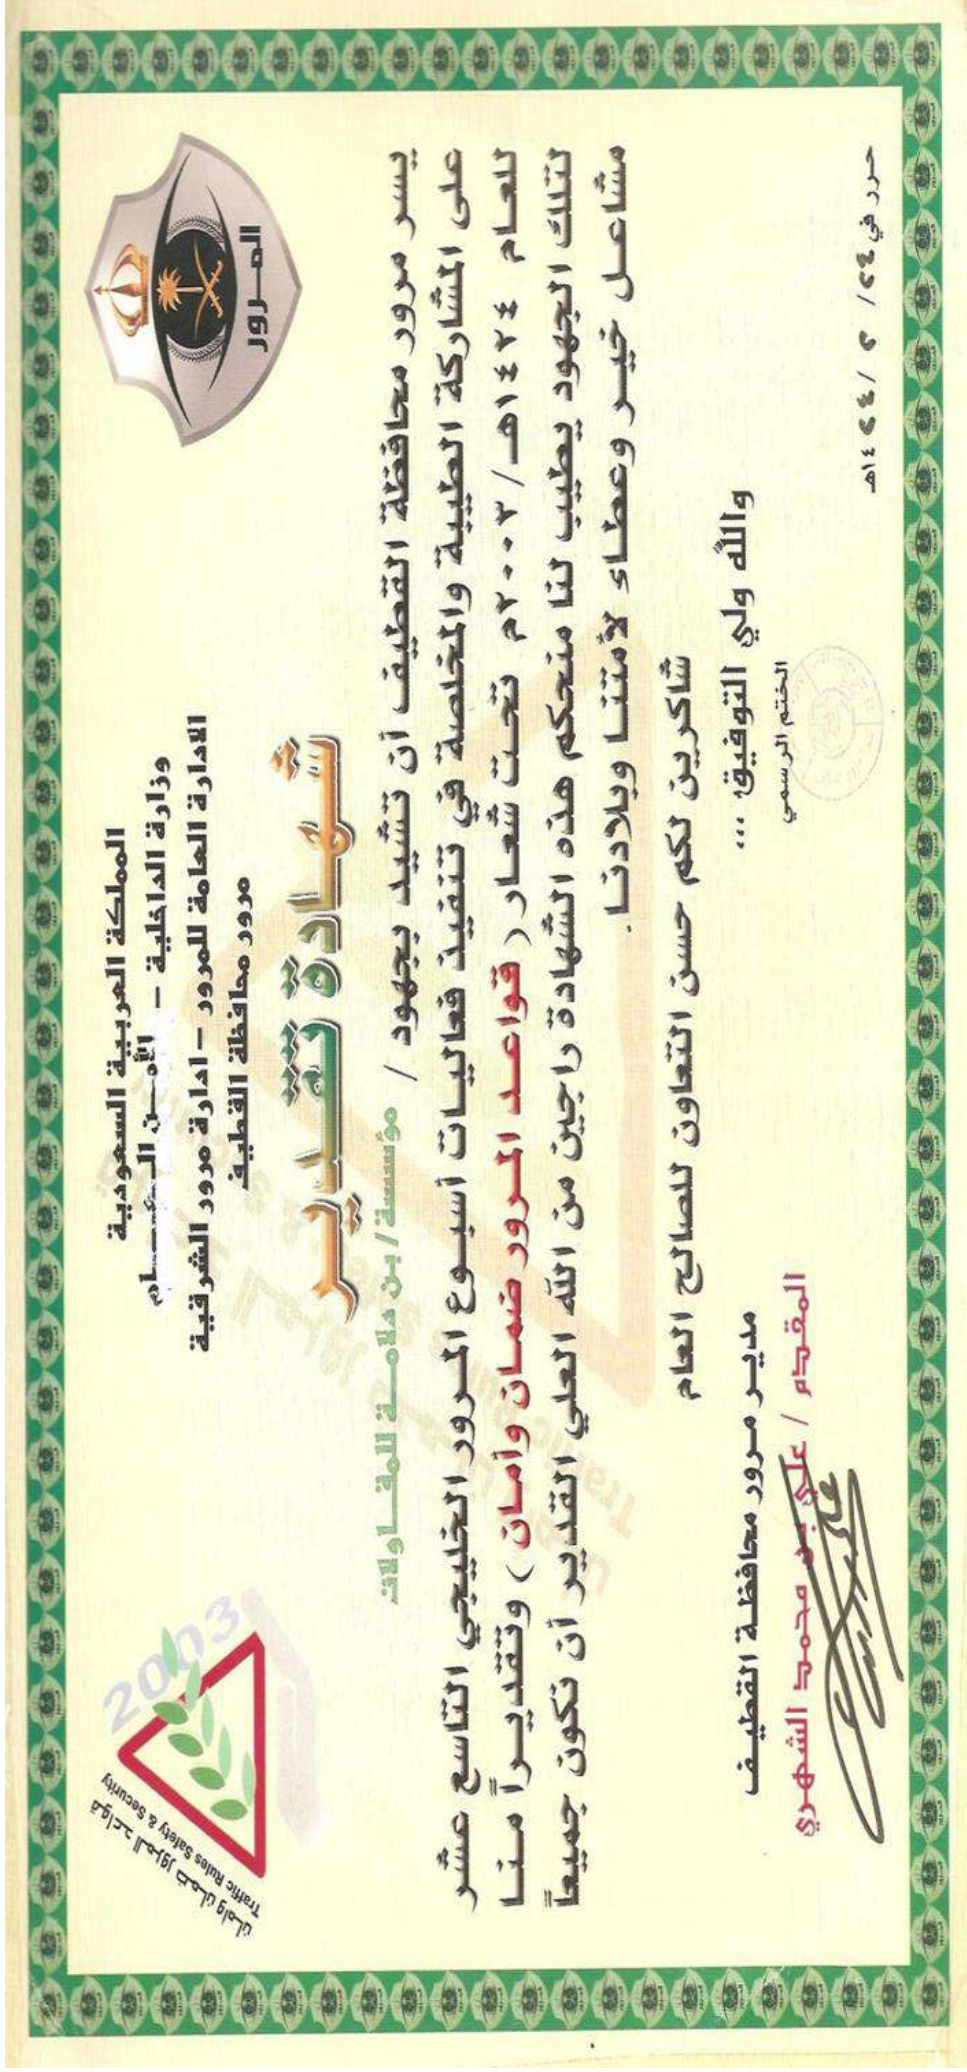 المملكة العربية السعودية
وزارة الداخلية – الأمـن العـــام
الادارة العامة للمرور – ادارة مرور الشرقية
مرور محافظة القطيف
المـرور
2003
قواعد المرور ضمان وامان
Traffic Rules Safety & Security
شهادة تقدير
يسر مرور محافظة القطيف أن تشيد بجهود / مؤسسة/ بن دلامـــة للمقـــاولات
على المشاركة الطيبة والمخلصة في تنفيذ فعاليـات أسبـوع المـرور الخليجي التاسع عشر
للعـام ١٤٢٤هـ/ ٢٠٠٣م تحـت شعـار ( قـواعـد المـرور ضمـان وأمـان ) وتقديـراً منـا
لتلك الجهود يطيب لنا منحكم هذه الشهادة راجين من الله العلي القدير أن نكون جميعاً
مشاعـل خيـر وعطـاء لأمتنـا وبلادنـا .
شاكرين لكم حسن التعاون للصالح العام
والله ولي التوفيق ...
الختم الرسمي
مديـر مـرور محافظـة القطيـف
المقـدم / علي بن محمد الشهـري
حرر في ٢٤/ ٢ /١٤٢٤هـ